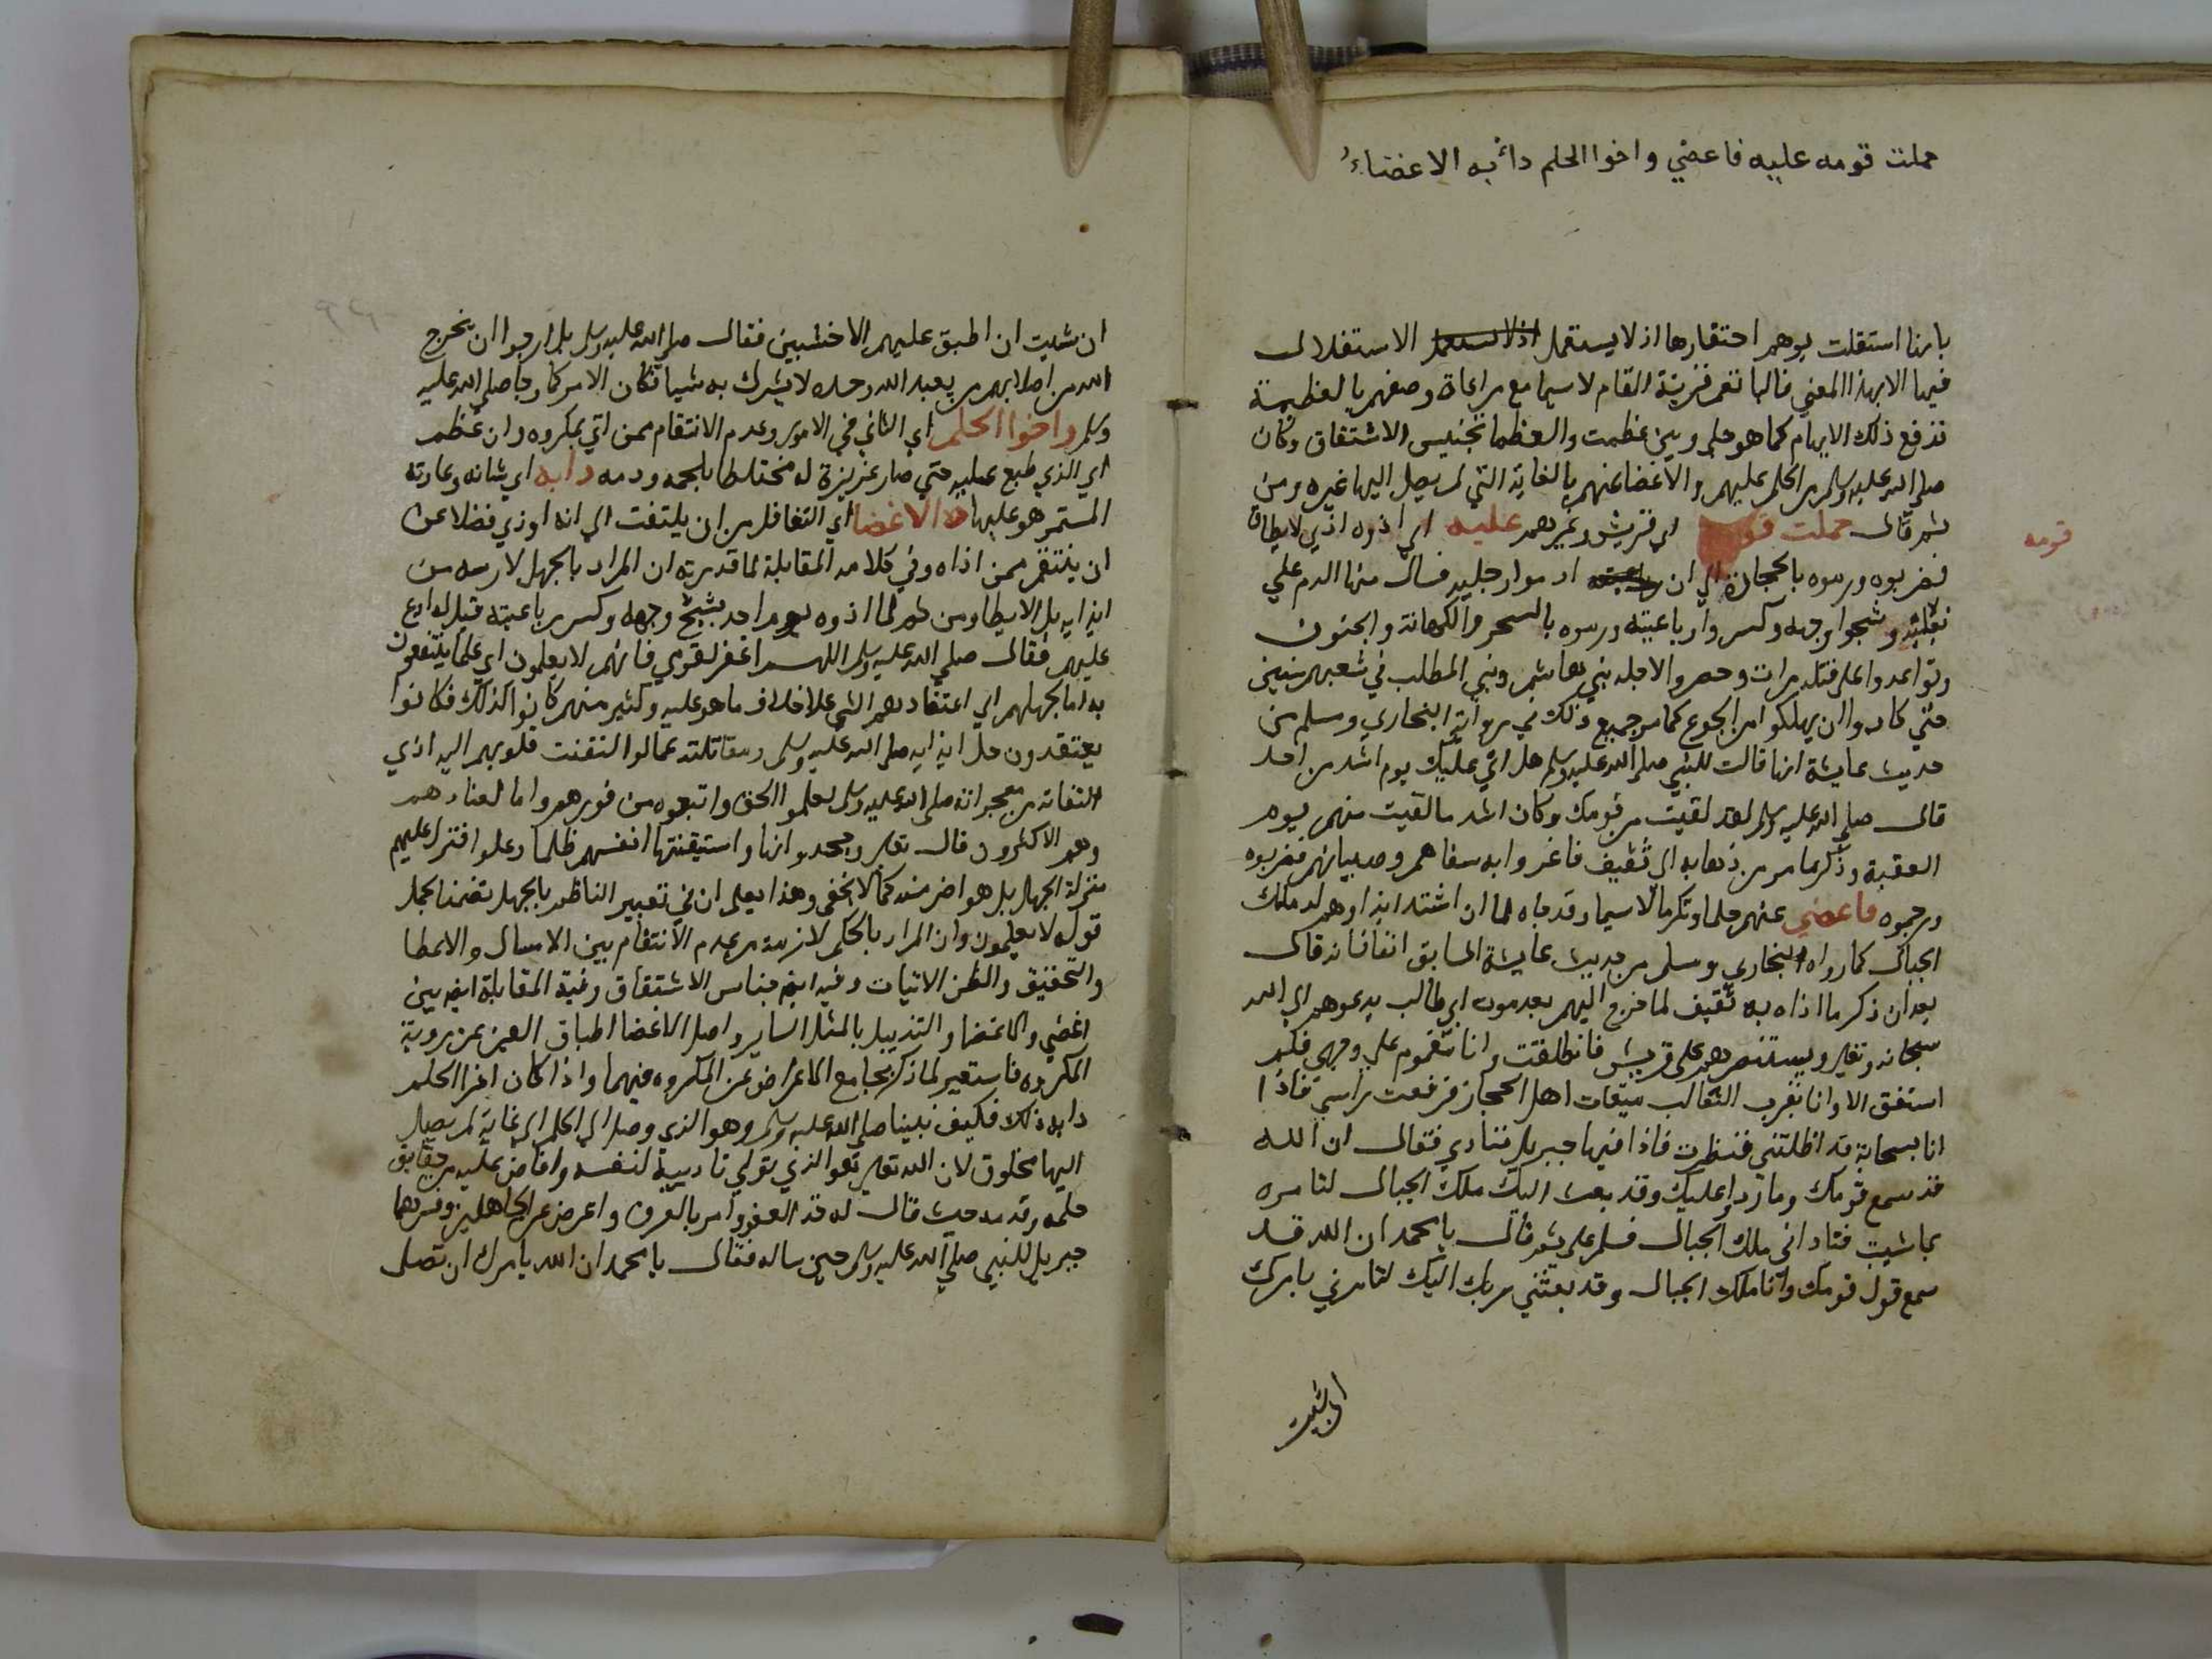 جهلت قومه عليه فاغضي واخوا الحلم دأبه الاغضاءُ
بانها استقلت يوهم احتقارها اذ لا يستعمل الاستقلال
فيها الا بهذا المعني فالها نعم قرينة المقام لاسيما مع مراعاة وصفهم بالعظيمة
تدفع ذلك الايهام كما هو جلي وبين عظمت والعظما تجنيس الاشتقاق وكان
صلي الله عليه وسلم من الحلم عليهم والاغضا عنهم بالغاية التي لم يصل اليها غيره ومن
ثم قال جهلت قومه اي قريش وغيرهم عليه اي اذوه اذي لا يطاق
قومه
فضربوه ورموه بالحجارة الي ان ادموا رجليه فسال منها الدم علي
نعليه وشجوا وجهه وكسروا رباعيته ورموه بالسحر والكهانة والجنون
وتواعدوا علي قتله مرات وحصروا لاجله بني هاشم وبني المطلب في شعبهم سنين
حتي كادوا ان يهلكوا من الجوع كما مر جميع ذلك في رواية البخاري ومسلم من
حديث عايشة انها قالت للنبي صلي الله عليه وسلم هل اتي عليك يوم اشد من احد
قال صلي الله عليه وسلم لقد لقيت من قومك وكان اشد ما لقيت منهم يوم
العقبة وذكر ما مر من ذهابه الي ثقيف فاغروا به سفاهم وصبيانهم فضربوه
ورجموه فاغضي عنهم حلما وتكرما لاسيما وقد جاه لما ان اشتد ايذاوهم له ملك
الجبال كما رواه البخاري ومسلم من حديث عايشة السابق اتفاقا انه قال
بعد ان ذكر ما اذاه به ثقيف لما خرج اليهم بعد موت ابي طالب يدعوهم الي الله
سبحانه وتعالي ويستنصرهم علي قريش فانطلقت وانا مهموم علي وجهي فلم
استفق الا وانا بقرب الثعالب ميقات اهل الحجاز فرفعت راسي فاذا
انا بسحابة قد اظلتني فنظرت فاذا فيها جبريل فنادي فقال ان الله
قد سمع قومك وما ردوا عليك وقد بعث اليك ملك الجبال لتامره
بما شيت فناداني ملك الجبال فسلم علي ثم قال يا محمد ان الله قد
سمع قول قومك وانا ملك الجبال وقد بعثني ربك اليك لتامرني بامرك
ان شيت
ان شيت ان اطبق عليهم الاخشبين فقال صلي الله عليه وسلم بل ارجوا ان يخرج
الله من اصلابهم من يعبد الله وحده لا يشرك به شيا فكان الامر كما رجا صلي الله عليه
وسلم واخوا الحلم اي التاني في الامور وعدم الانتقام ممن اتي بمكروه وان عظم
اي الذي طبع عليه حتي صار غريزة له مختلطا بلحمه ودمه دابه اي شانه وعادته
المستمر هو عليها الاغضا اي التغافل من ان يلتفت الي انه اوذي فضلا عن
ان ينتقم ممن اذاه وفي كلامه المقابلة لما قدرته ان المراد بالجهل لازمه من
ايذايه بل الايطا ومن ثم لما اذوه يوم احد بشج وجهه وكسر رباعيته قيل له ادع
عليهم فقال صلي الله عليه وسلم اللهم اغفر لقومي فانهم لا يعلمون اي علما ينتفعون
به اما بجهلهم اي اعتقادهم الشي علي خلاف ما هو عليه وكثير منهم كانوا كذلك فكانوا
يعتقدون حل ايذايه صلي الله عليه وسلم ومقاتلته عما لو التفتت قلوبهم اليه اذي
التفاته من معجزاته صلي الله عليه وسلم لعلموا الحق واتبعوه من فورهم واما لعنادهم
وهم الاكثرون قال تعالي وجحدوا بها واستيقنتها انفسهم ظلما وعلوا فنزل عليهم
منزلة الجهل بل هو اضر منه كما لا يخفي وهذا يعلم ان في تعبير الناظم بالجهل تضمنا لجمل
قوله لا يعلمون وان المراد بالحلم لازمه من عدم الانتقام بين الامسال والاعطا
والتحقيق والظن الاتيات وفيه ايضا جناس الاشتقاق وفيه المقابلة ايضا بين
اغضي والاغضا والتذييل بالمثل الساير واصل الاغضا اطباق العين عن روية
المكروه فاستعير لما ذكر بجامع الاعراض عن المكروه فيهما واذا كان اخوا الحلم
دابه ذلك فكيف نبينا صلي الله عليه وسلم وهو الذي وصل الي الحلم الي غاية لم يصل
اليها مخلوق لان الله تعالي هو الذي تولي تاديبه لنفسه وافاض عليه من حقايق
حلمه وقد مدحه حيث قال له خذ العفو وامر بالعرف واعرض عن الجاهلين وفسرها
جبريل للنبي صلي الله عليه وسلم حين ساله فقال يا محمد ان الله يامرك ان تصل